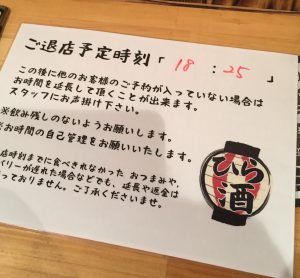 ご退店予定時刻「18:25」
この後に他のお客様のご予約が入っていない場合は
お時間を延長して頂くことが出来ます。
スタッフにお声掛け下さい。
※飲み残しのないようお願いします。
※お時間の自己管理をお願いいたします。
店時刻までに食べきれなかった おつまみや、
バリーが遅れた場合などでも、延長や返金は
っておりません。ご了承くださいませ。
ひら
酒